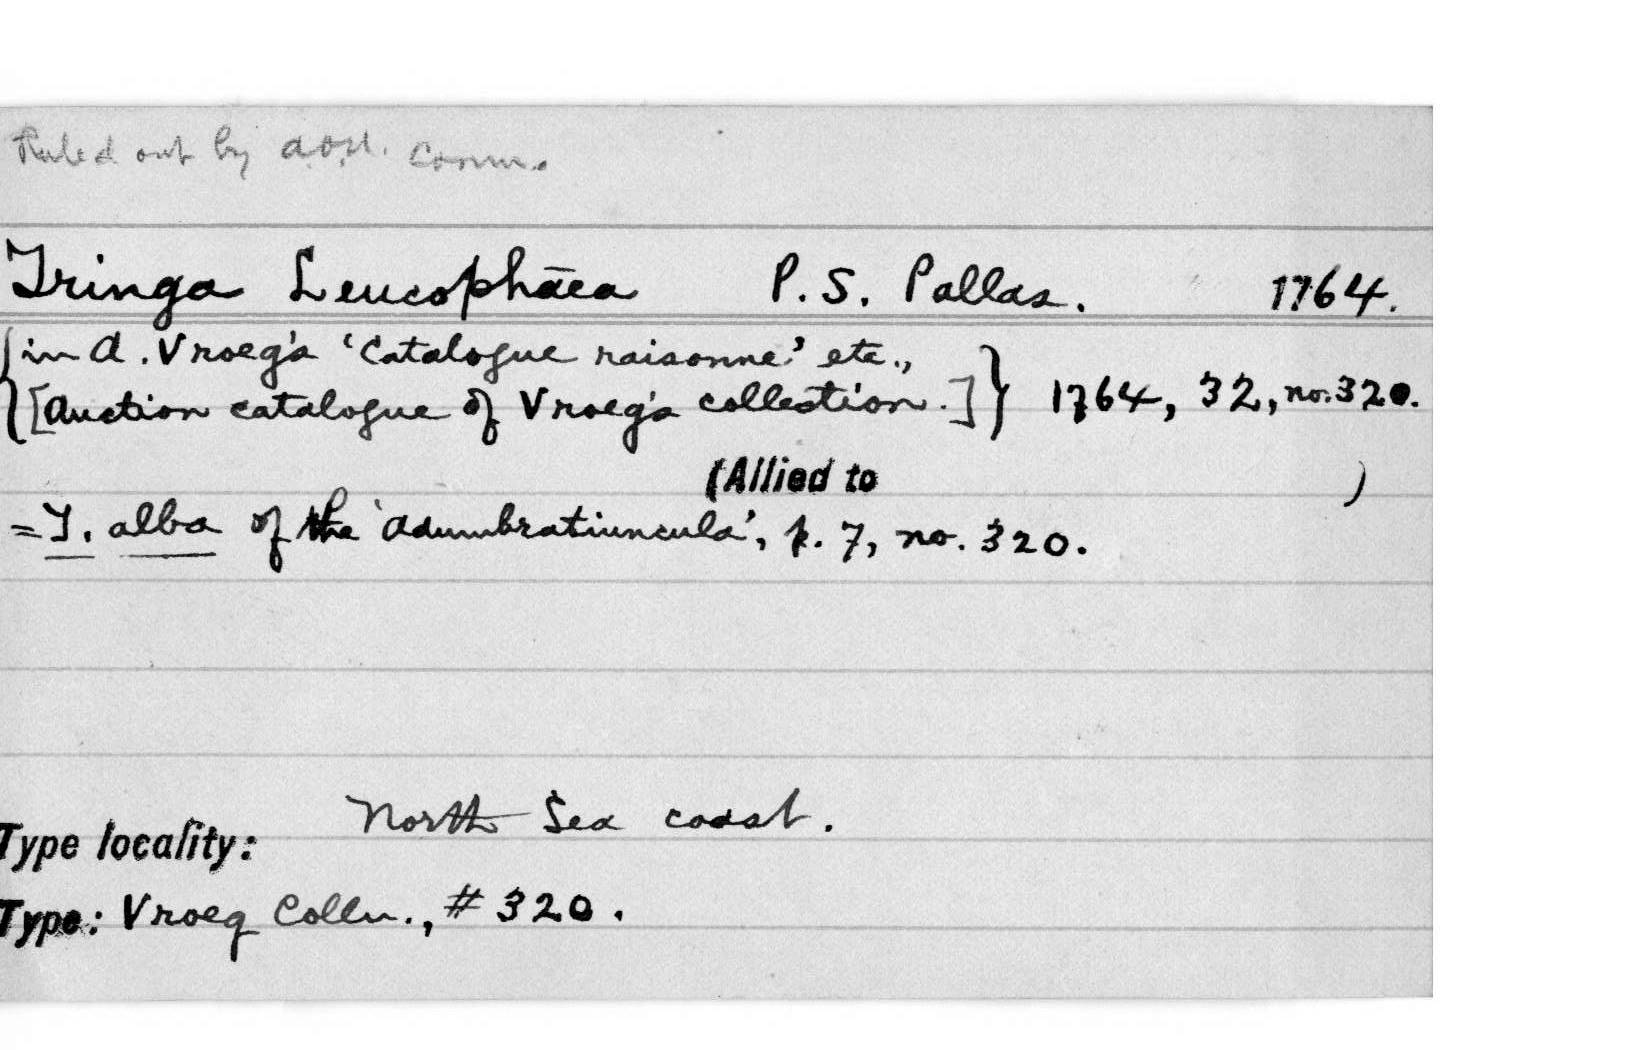 Ruled out by A.O.U. Comm.
Tringa Leucophāea P. S. Pallas. 1764.
{in A. Vroeg's 'Catalogue raisonne' etc.,
[Auction catalogue of Vroeg's collection.]} 1764, 32, no. 320.
(Allied to )
= T. alba of the 'Adumbratiuncula', p. 7, no. 320.
Type locality: North Sea coast.
Type: Vroeg Colln., # 320.